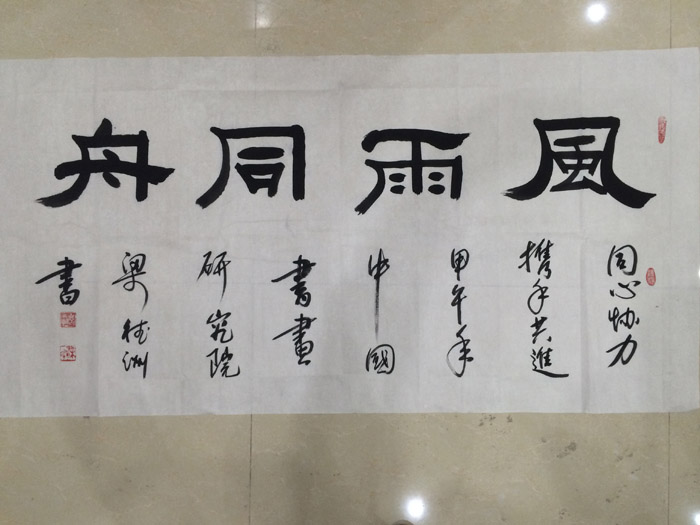 風雨同舟
同心协力
携手共進
甲午年
中國
書畫
研究院
梁桂洲
書